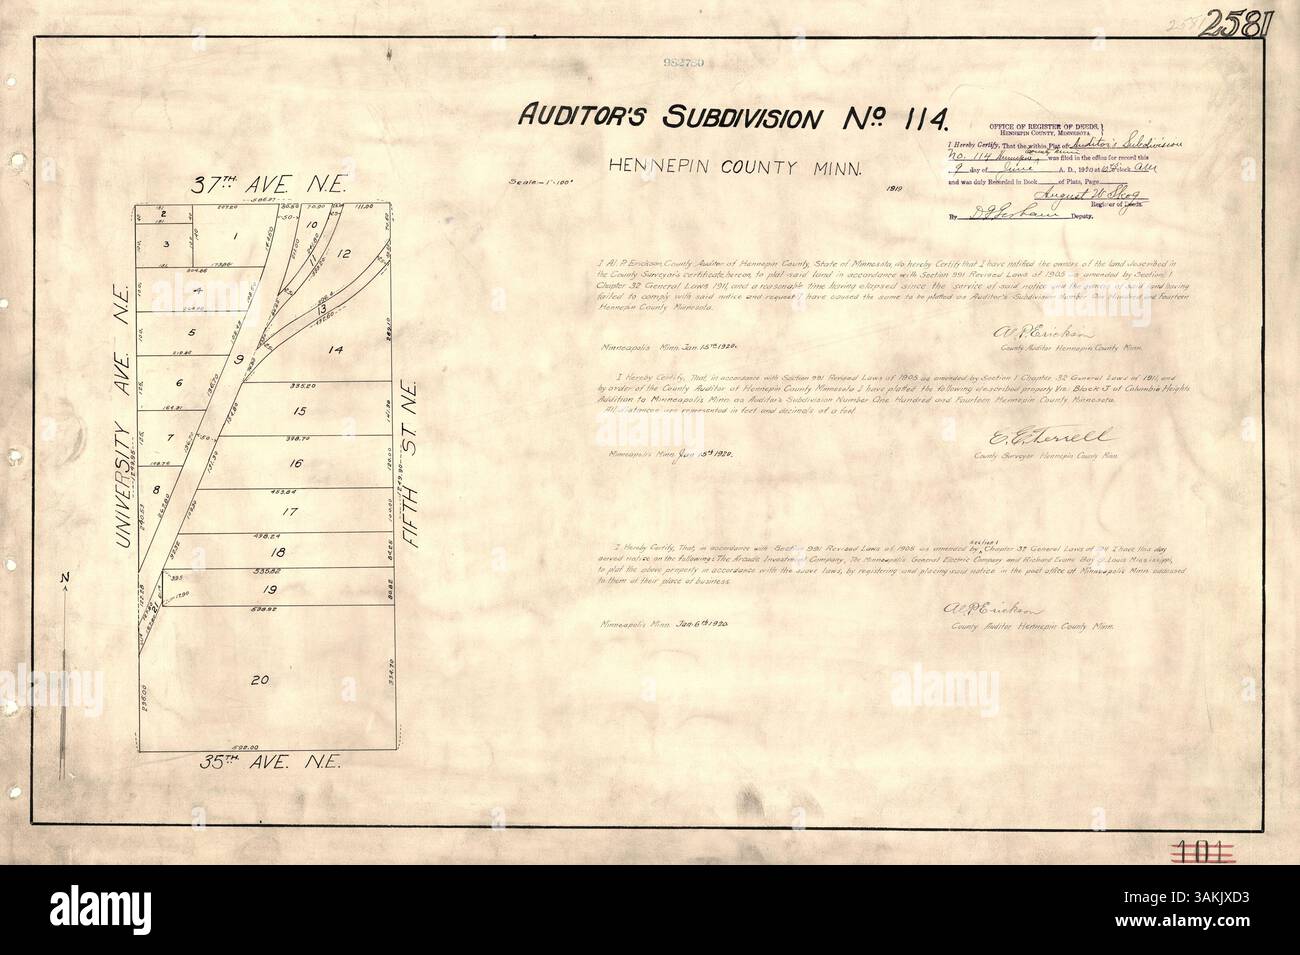 2581
2581
982780
AUDITOR'S SUBDIVISION No 114.
HENNEPIN COUNTY MINN.
Scale—1"=100'
1919
OFFICE OF REGISTER OF DEEDS,
HENNEPIN COUNTY, MINNESOTA
I Hereby Certify, That the within Plat of Auditor's Subdivision
No. 114 Hennepin County Minn was filed in the office for record this
9 day of June A. D., 1920 at o'clock A M
and was duly Recorded in Book of Plats, Page
August W Skog
Register of Deeds.
By Deputy.
I Al. P. Erickson, County Auditor of Hennepin County, State of Minnesota, do hereby Certify that I have notified the owners of the land described in
the County Surveyor's certificate hereon, to plat said land in accordance with Section 991 Revised Laws of 1905 as amended by Section 1
Chapter 32 General Laws 1911, and a reasonable time having elapsed since the service of said notice and the owners of said land having
failed to comply with said notice and request I have caused the same to be platted as Auditor's Subdivision Number One Hundred and Fourteen
Hennepin County Minnesota.
Al. P. Erickson
Minneapolis Minn. Jan. 15th 1920.
County Auditor Hennepin County Minn.
I Hereby Certify, That, in accordance with Section 991 Revised Laws of 1905 as amended by Section 1 Chapter 32 General Laws of 1911, and
by order of the County Auditor of Hennepin County Minnesota I have platted the following described property Viz: Block J of Columbia Heights
Addition to Minneapolis Minn. as Auditor's Subdivision Number One Hundred and Fourteen Hennepin County Minnesota.
All distances are represented in feet and decimals of a foot.
E. E. Terrell
Minneapolis Minn. Jan 15th 1920.
County Surveyor Hennepin County Minn.
Section 1
I Hereby Certify, That, in accordance with Section 991 Revised Laws of 1905 as amended by Chapter 32 General Laws of 1911 I have this day
served notice on the following: The Arcade Investment Company, The Minneapolis General Electric Company and Richard Evans Bay St Louis Mississippi,
to plat the above property in accordance with the above laws, by registering and placing said notice in the post office at Minneapolis Minn addressed
to them at their place of business.
Al. P. Erickson
Minneapolis Minn. Jan. 6th 1920.
County Auditor Hennepin County Minn.
37TH AVE. N.E.
UNIVERSITY AVE. N.E.
FIFTH ST. N.E.
35TH AVE. N.E.
N
1
2
3
4
5
6
7
8
9
10
11
12
13
14
335.20
15
398.70
16
453.84
17
498.24
18
535.82
19
598.92
20
21
592.00
236.00
334.70
101
alamy
Image ID: 2AKJXD3
www.alamy.com